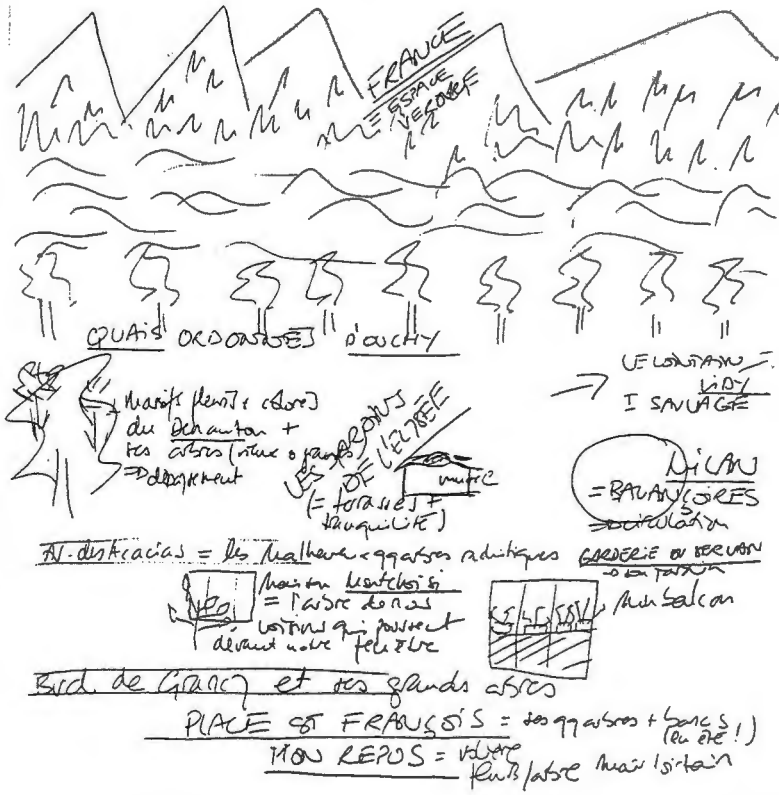 FRANCE
= ESPACE
QUAIS ORDONNÉS D'OUCHY
LE LOINTAIN =
VIDY
SAUVAGE
Massifs fleuris colorés
du Denantou +
ses arbres
LES JARDINS
DE L'ELYSÉE
(= terrasses +
tranquilité)
MILAN
= BALANÇOIRES
circulation
Av. des Acacias = les malheureux qq arbres rachitiques
GARDERIE DU SERVAN
Maison Montchoisi
= l'arbre de nos
voisins qui poussent
devant notre fenêtre
Mon balcon
Bvd. de Grancy et ses grands arbres
PLACE ST FRANÇOIS = ses qq arbres + bancs
(en été !)
MON REPOS = volière
fleurs/arbre mais lointain